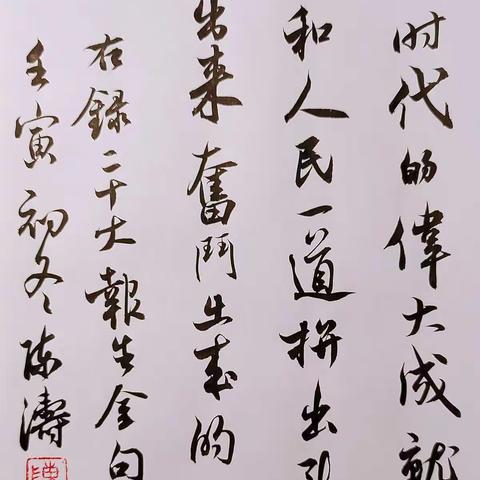 时代的偉大成就
和人民一道拼出
出来奮鬥出来的
右録二十大報告金句
壬寅初冬陈濤